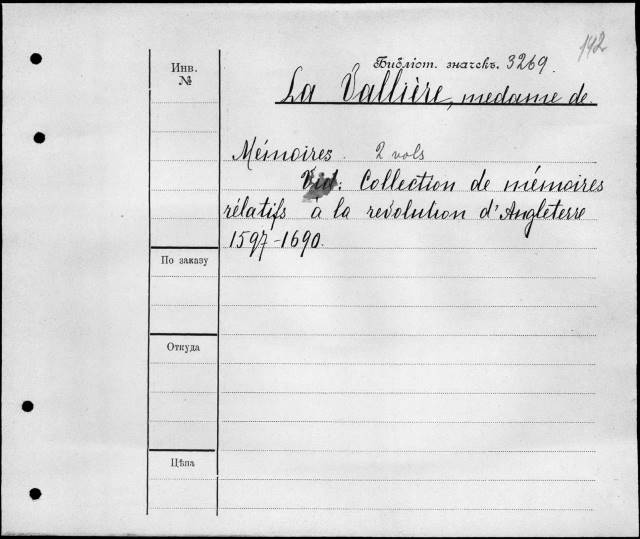 142
Библіот. значекъ. 3269.
Инв.
№
La Vallière, medame de.
Mémoires. 2 vols
Vid: Collection de mémoires
rélatifs à la revolution d'Angleterre
1597-1690.
По заказу
Откуда
Цѣна